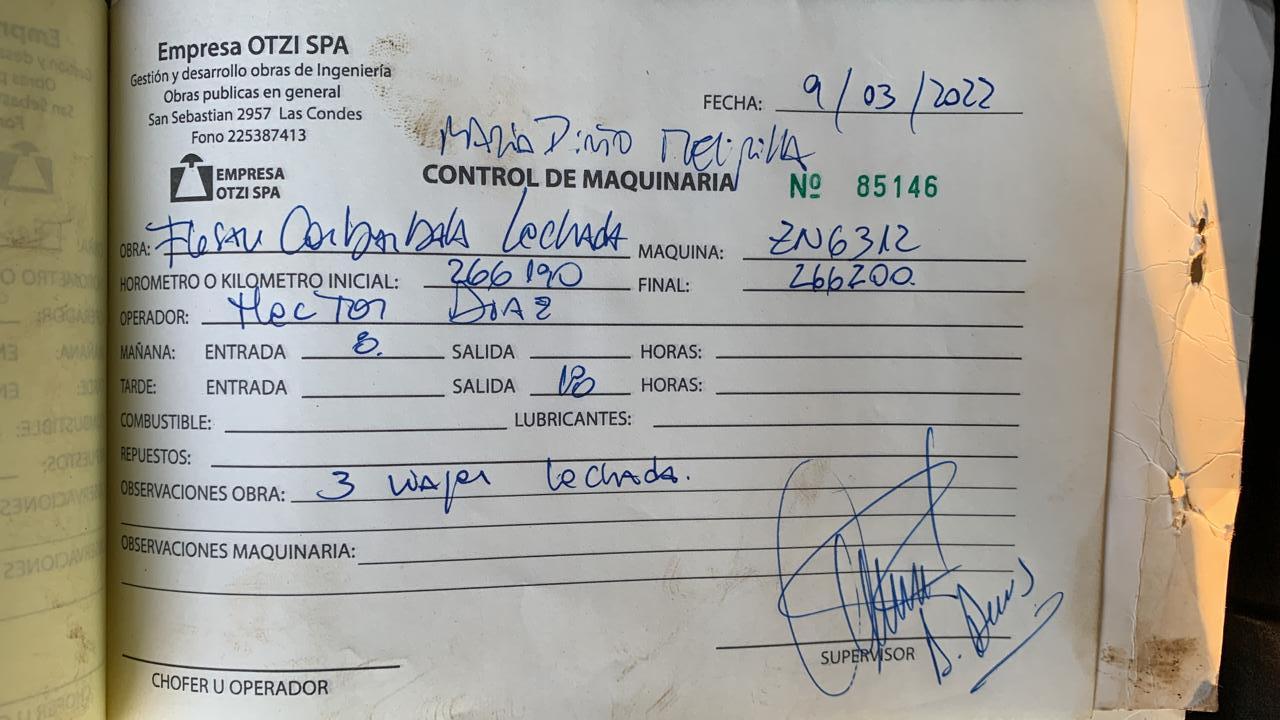 Empresa OTZI SPA
Gestión y desarrollo obras de Ingeniería
Obras publicas en general
San Sebastian 2957 Las Condes
Fono 225387413
EMPRESA
OTZI SPA
FECHA: 9/03/2022
MARIA PINTO MELIPILLA
CONTROL DE MAQUINARIA Nº 85146
OBRA: Lechada MAQUINA: ZN6312
HOROMETRO O KILOMETRO INICIAL: 266190 FINAL: 266200.
OPERADOR: HECTOR DIAZ
MAÑANA: ENTRADA 8. SALIDA HORAS:
TARDE: ENTRADA SALIDA 18 HORAS:
COMBUSTIBLE: LUBRICANTES:
REPUESTOS:
OBSERVACIONES OBRA: 3 viajes Lechada.
OBSERVACIONES MAQUINARIA:
SUPERVISOR
CHOFER U OPERADOR